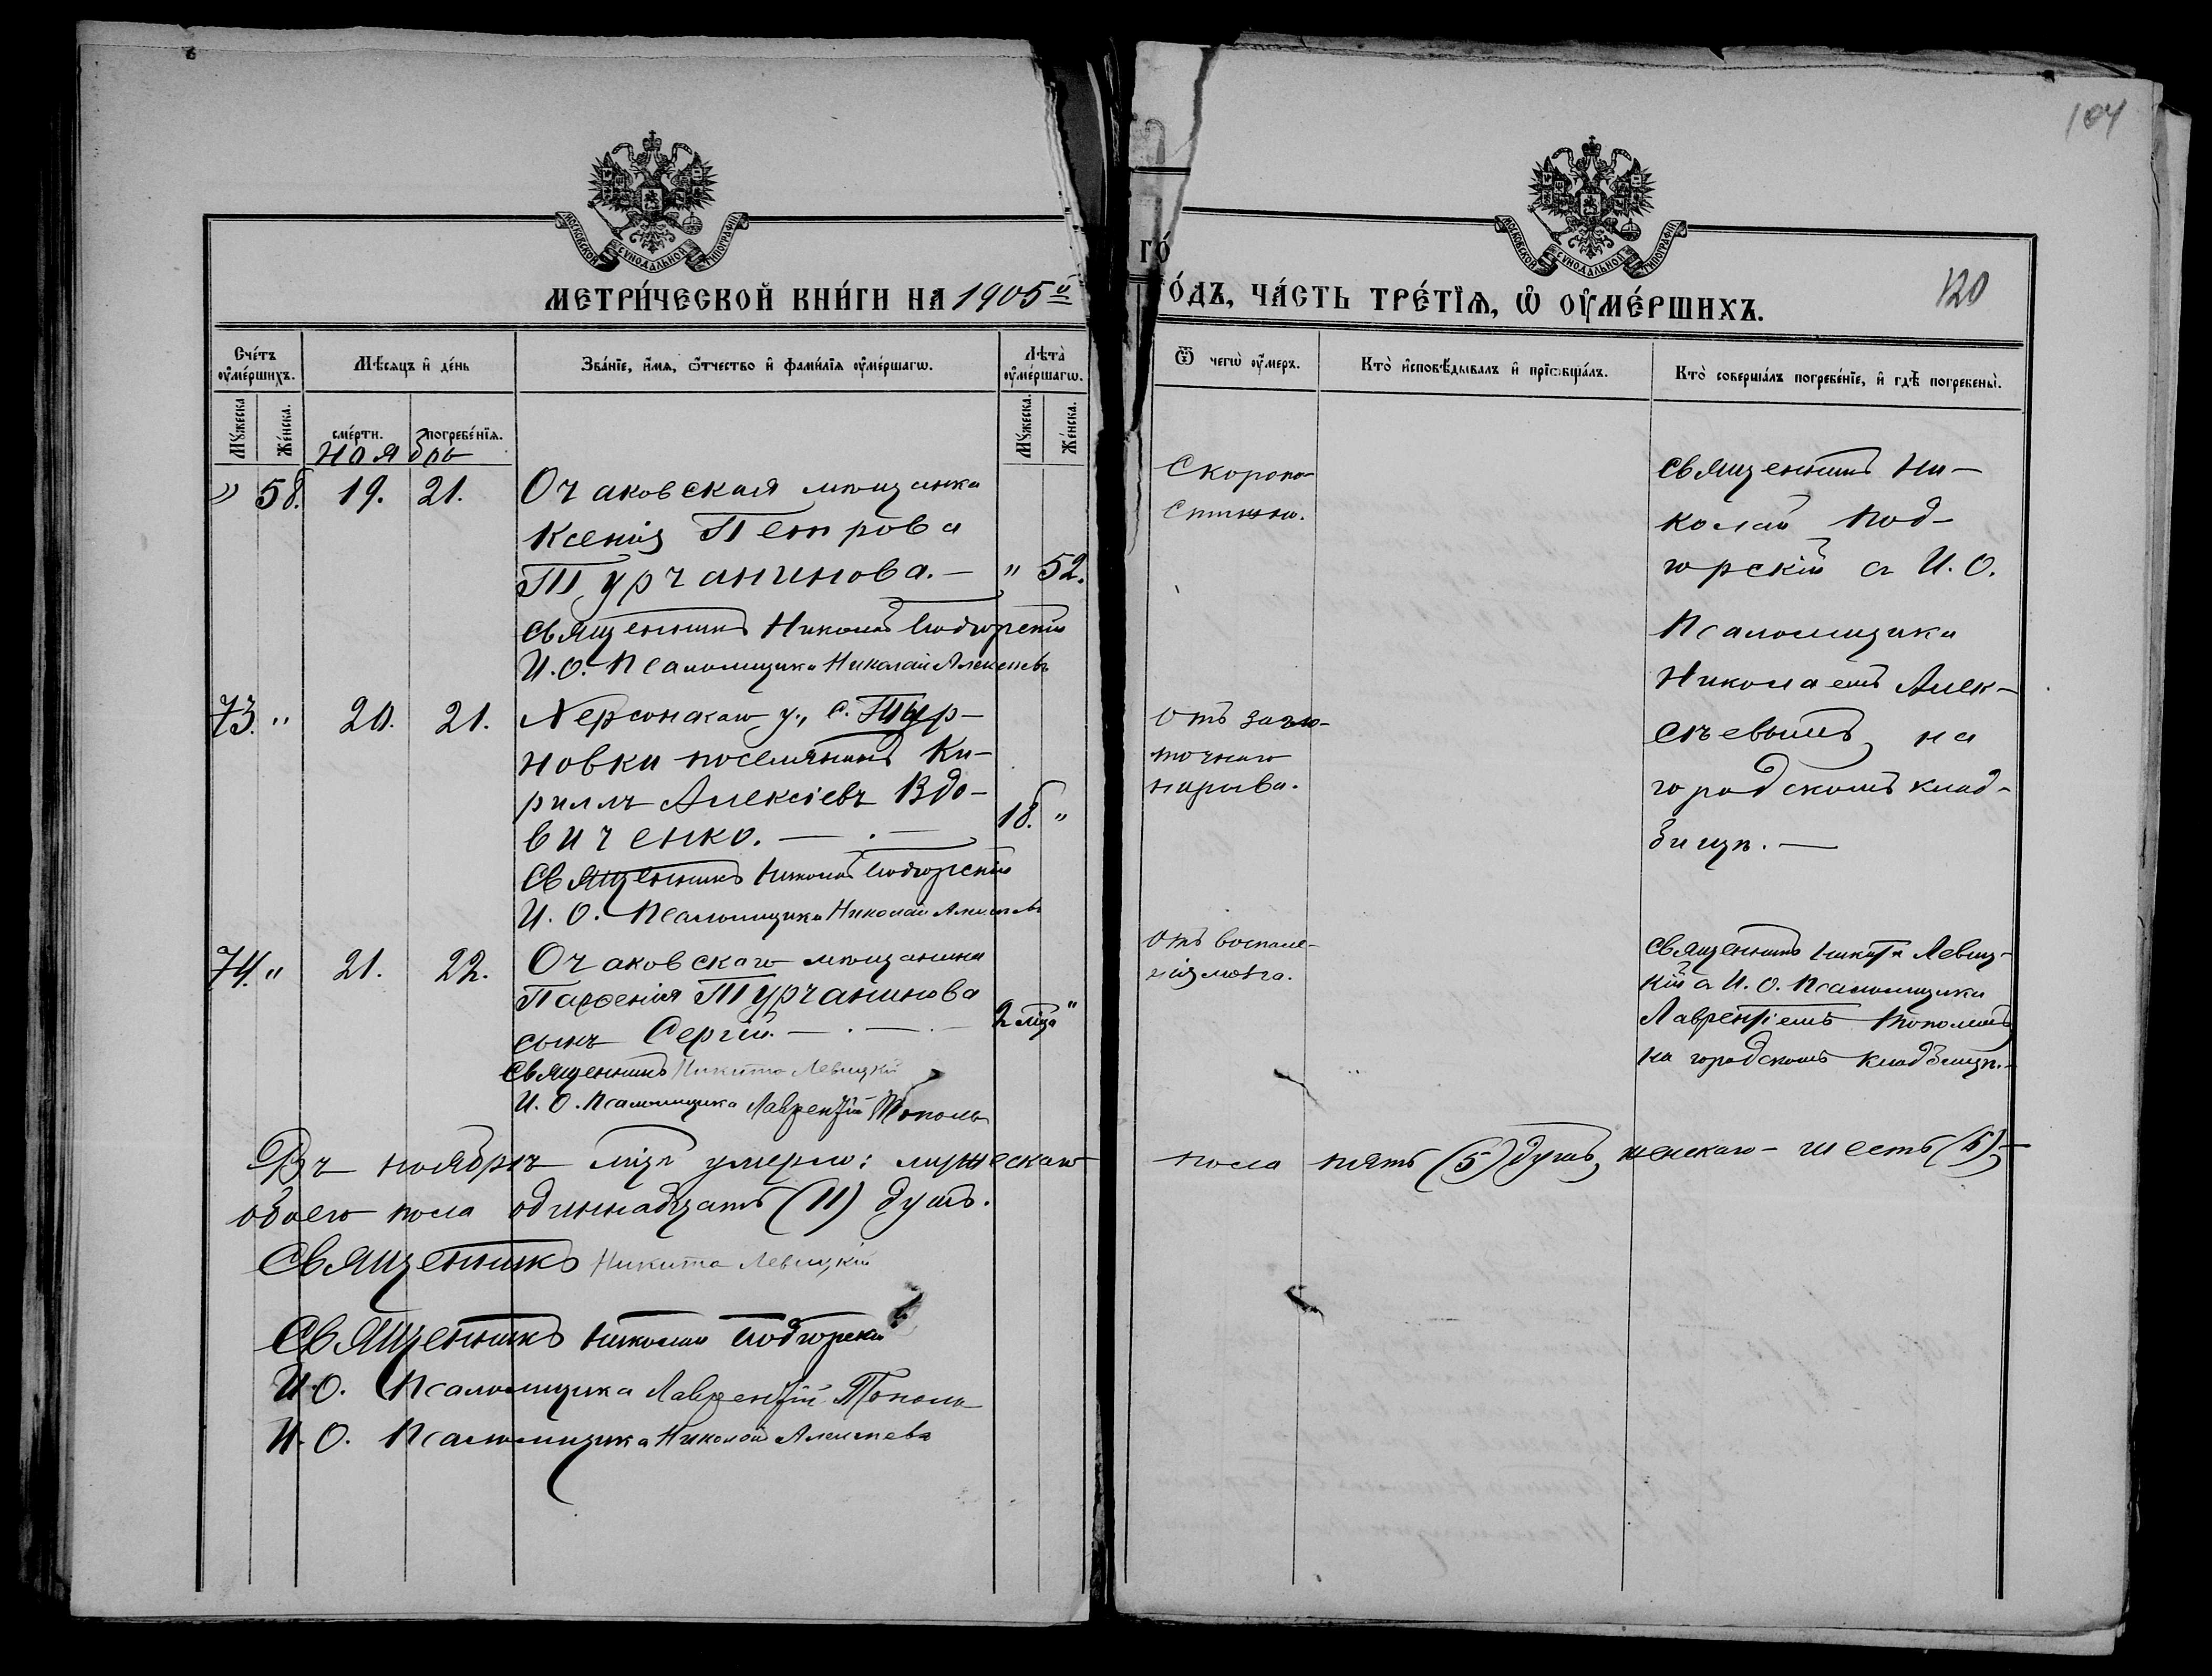 104
120
МОСКОВСКОЙ СѴНОДАЛЬНОЙ ТИПОГРАФІИ
МОСКОВСКОЙ СѴНОДАЛЬНОЙ ТИПОГРАФІИ
МЕТРИ́ЧЕСКОЙ КНИ́ГИ НА 1905й
ГО́
ГО́ДЪ, ЧА́СТЬ ТРЕ́ТІѦ, Ѡ҆ ОУ҆МЕ́РШИХЪ.
Сче́тъ оу҆ме́ршихъ.
Мѣ́сяцъ и҆ де́нь
Зва́нїе, и҆́мѧ, ѻ҆́тчество и҆ фами́лїѧ оу҆ме́ршагѡ.
Лѣта̀ оу҆ме́ршагѡ.
Ѿ чегѡ̀ оу҆́меръ.
Кто̀ и҆сповѣ́дывалъ и҆ прїѡбща́лъ.
Кто̀ соверша́лъ погребе́нїе, и҆ гдѣ̀ погребены̀.
Мꙋ́жеска
Же́нска.
сме́рти.
погребе́нїѧ.
Мꙋ́жеска.
Же́нска.
Ноябрь
" 58. 19. 21. Очаковская мѣщанка
Ксенія Петрова
Турчанинова. — " 52.
Священникъ Николай Подгорскій
И. О. Псаломщика Николай Алексѣевъ
Скоропо-
стижно.
Священникъ Ни-
колай Под-
горскій съ И. О.
Псаломщика
Николаемъ Алек-
сѣевымъ, на
городскомъ клад-
бищѣ. —
73. " 20. 21. Херсонскаго у., с. Тур-
новки поселянинъ Ки-
риллъ Алексіевъ Вдо-
виченко. — . — 18. "
Священникъ Николай Подгорскій
И. О. Псаломщика Николай Алексѣевъ
Отъ
точнаго
нарыва.
74. " 21. 22. Очаковскаго мѣщанина
Парѳенія Турчанинова
сынъ Сергій. — . — . — 2 мѣца "
Священникъ Никита Левицкій
И. О. Псаломщика Лаврентій Тополь
Отъ воспале-
нія мозга.
Священникъ Никита Левиц-
кій съ И. О. Псаломщика
Лаврентіемъ Тополемъ
на городскомъ кладбищѣ. —
Въ ноябрѣ мцѣ умерло: мужескаго пола пять (5) душъ, женскаго — шесть (6), —
обоего пола одиннадцать (11) душъ.
Священникъ Никита Левицкій
Священникъ Николай Подгорскій
И. О. Псаломщика Лаврентій Тополь
И. О. Псаломщика Николай Алексѣевъ